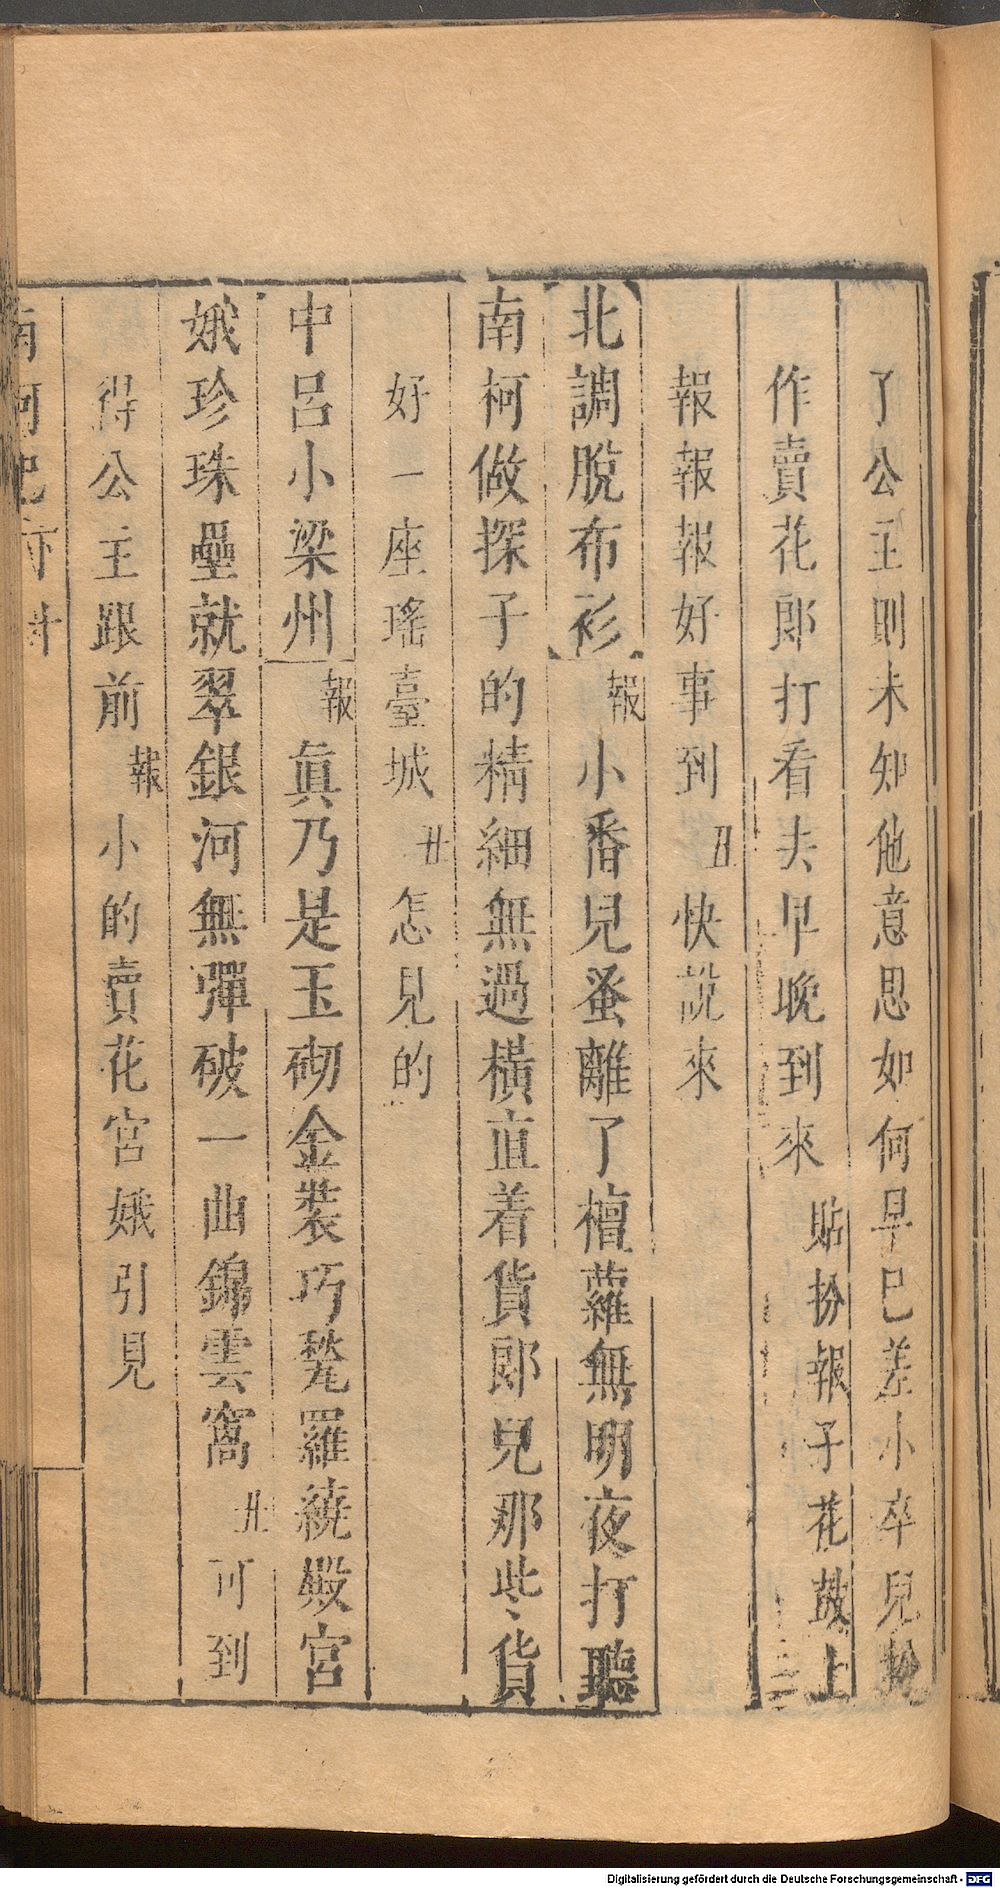 了公主則未知他意思如何早已差小卒兒扮
作賣花郎打看去早晚到來貼扮報子花鼓上
報報報好事到丑快說來
北調脫布衫報小番兒蚤離了檀蘿無明夜打聽
南柯做探子的精細無過橫直着貨郎兒那些貨
好一座瑤臺城丑怎見的
中呂小梁州報眞乃是玉砌金裝巧甃羅繞殿宮
娥珍珠壘就翠銀河無彈破一曲錦雲窩丑可到
得公主跟前報小的賣花宮娥引見
南柯記
Digitalisierung gefördert durch die Deutsche Forschungsgemeinschaft - DFG